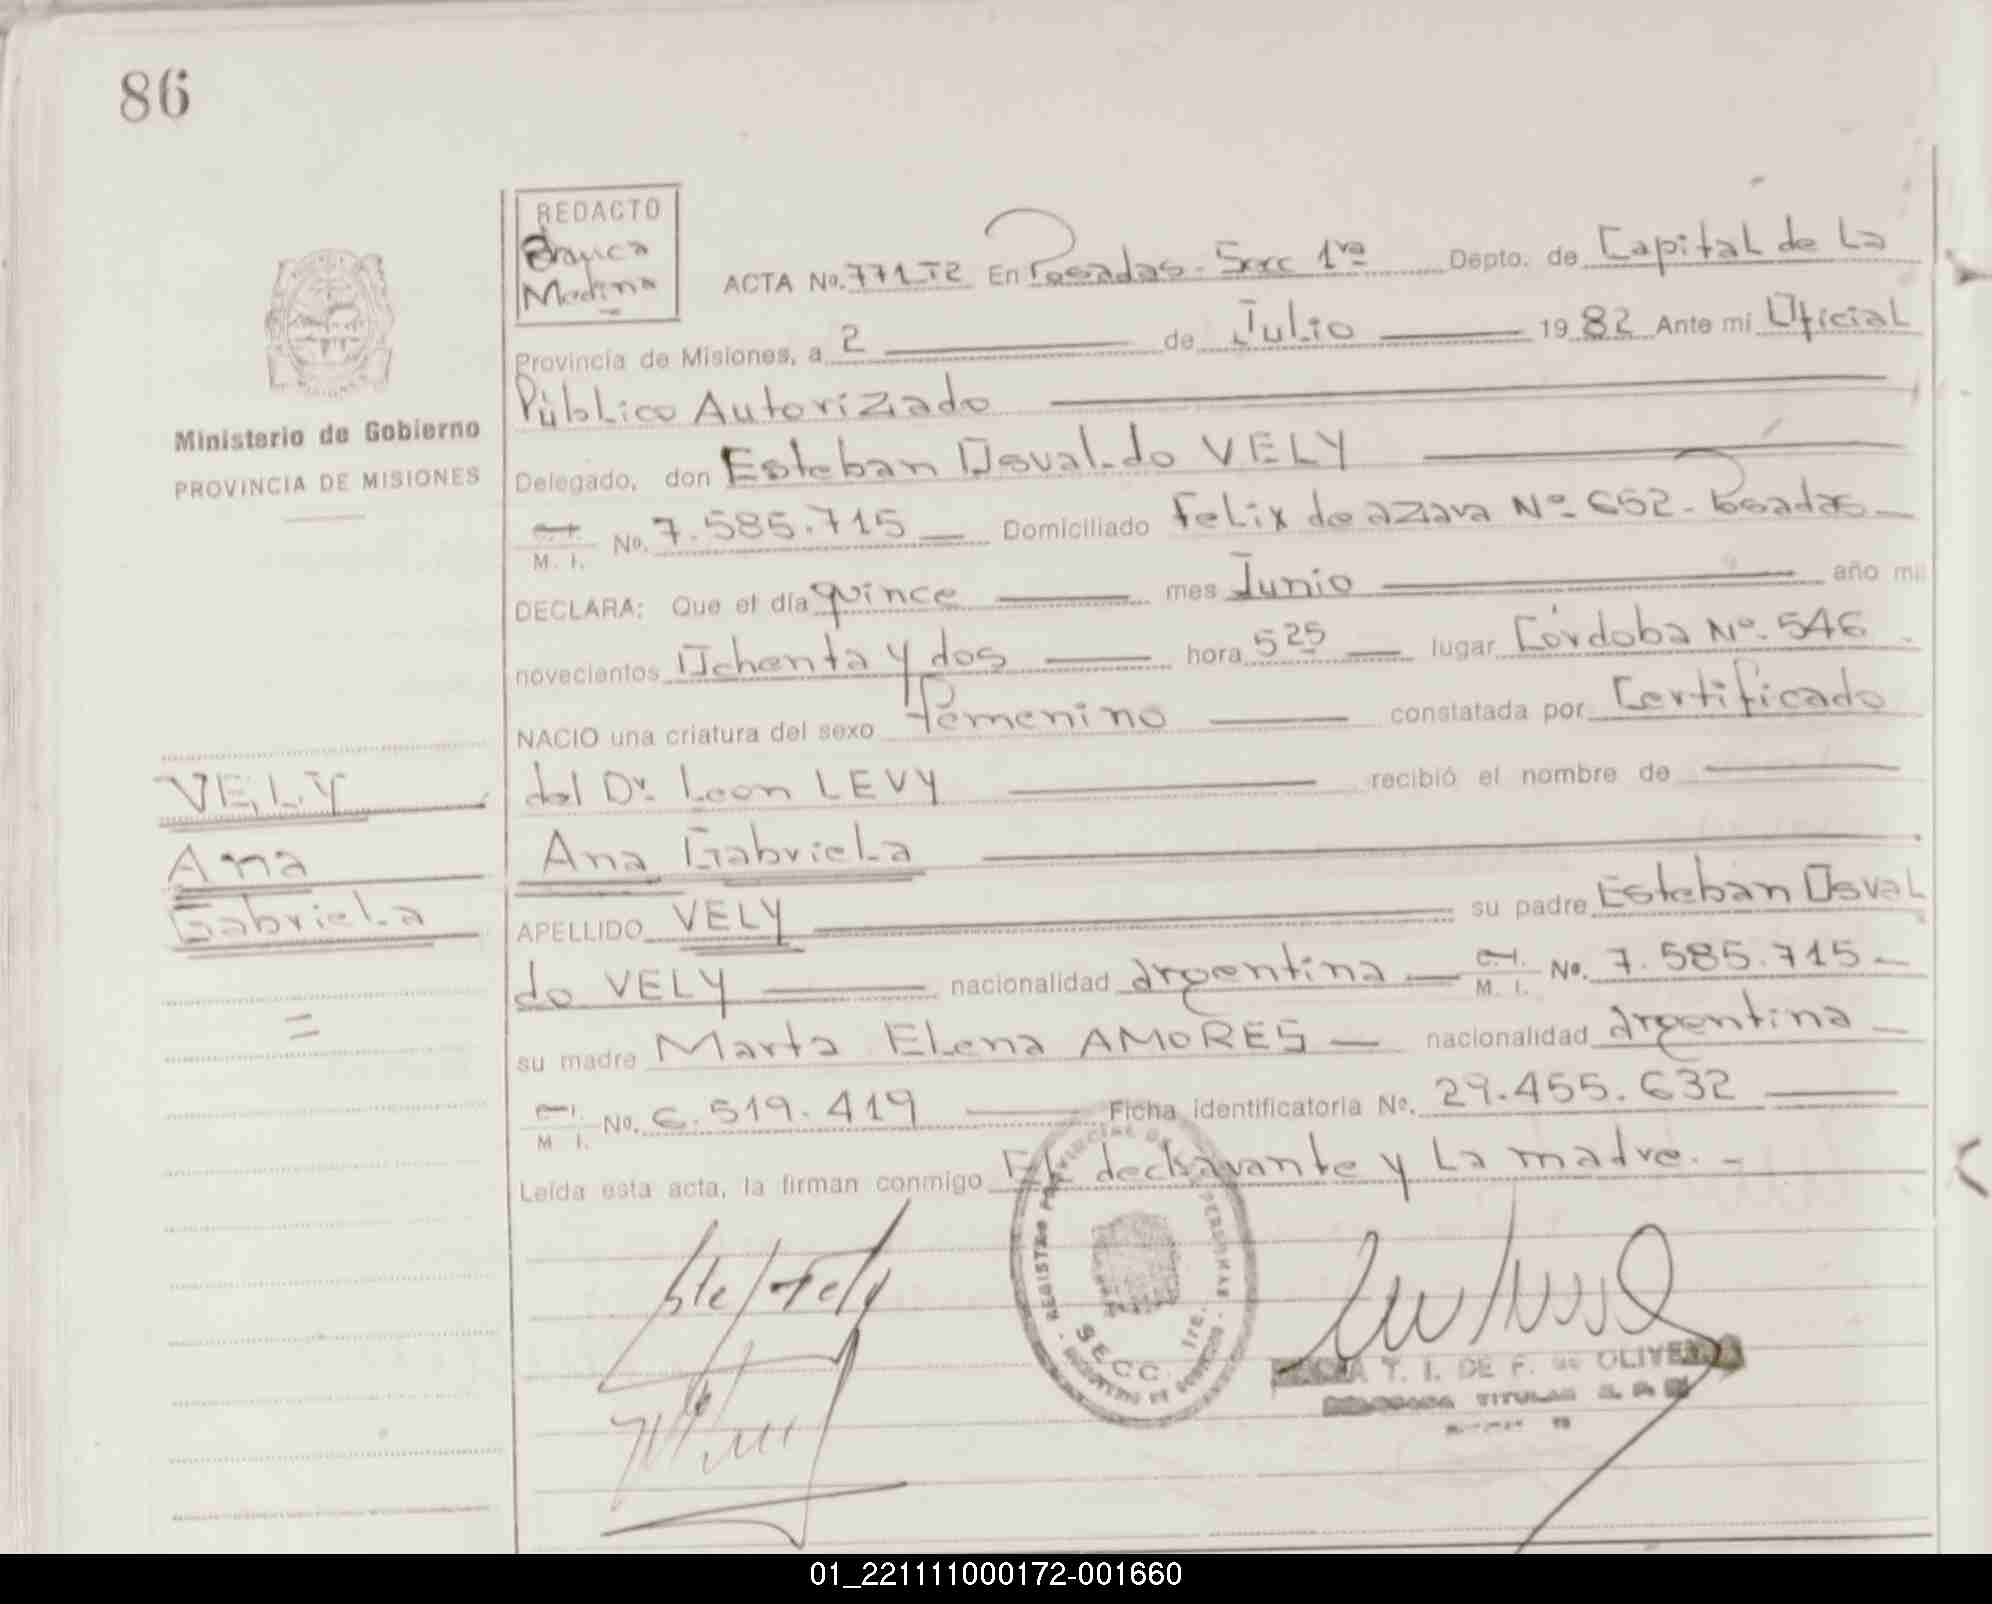 86
REDACTO
Blanca
Medina
ACTA No. 771 T2 En Posadas - Secc 1ra Depto. de Capital de La
Provincia de Misiones, a 2 de Julio 1982 Ante mi Oficial
Público Autorizado
Delegado, don Esteban Osvaldo VELY
C.I. / M. I. No. 7.585.715 Domiciliado Felix de azara Nº 652 - Posadas
DECLARA: Que el día quince mes Junio año mil
novecientos Ochenta y dos hora 5 25 lugar Córdoba Nº 546
NACIO una criatura del sexo Femenino constatada por Certificado
del Dr. Leon LEVY recibió el nombre de
Ana Gabriela
APELLIDO VELY su padre Esteban Osval
do VELY nacionalidad argentina C.I. / M. I. No. 7.585.715
su madre Marta Elena AMORES nacionalidad argentina
C.I. / M I. No. 6.519.419 Ficha identificatoria No. 29.455.632
Leída esta acta, la firman conmigo El declarante y La madre. -
Ministerio de Gobierno
PROVINCIA DE MISIONES
VELY
Ana
Gabriela
=
REGISTRO PROVINCIAL DE LAS PERSONAS
SECC. 1ra.
Y. I. DE F. DE OLIVERA
TITULAR
01_221111000172-001660